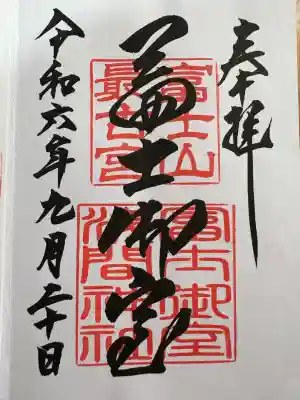 奉拝
冨士御室
富士山
最古宮
冨士御室
浅間神社
令和六年九月二十日